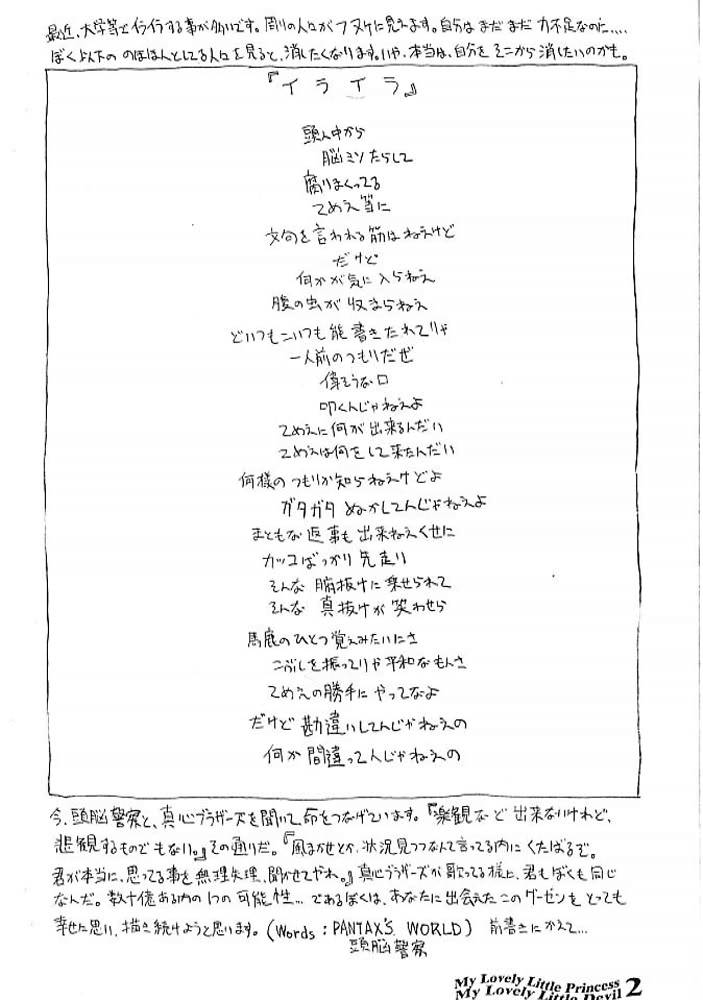 最近、大学等でイライラする事が多いです。周りの人々がフヌケに見えます。自分はまだまだ力不足なのに....
ぼく以下の のほほんとしてる人々を見ると、消したくなります。いや、本当は、自分をそこから消したいのかも。
『イライラ』
頭ん中から
脳ミソたらして
腐りまくってる
てめえ等に
文句を言われる筋はねえけど
だけど
何かが気に入らねえ
腹の虫が収まらねえ
どいつもこいつも能書きたれてりゃ
一人前のつもりだぜ
偉そうな口
叩くんじゃねえよ
てめえに何が出来るんだい
てめえは何をして来たんだい
何様のつもりか知らねえけどよ
ガタガタぬかしてんじゃねえよ
まともな返事も出来ねえくせに
カッコばっかり先走り
そんな 腑抜けに乗せられて
そんな 真抜けが笑わせら
馬鹿のひとつ覚えみたいにさ
こぶしを振ってりゃ平和なもんさ
てめえの勝手にやってなよ
だけど勘違いしてんじゃねえの
何か間違ってんじゃねえの
今、頭脳警察と、真心ブラザーズを聞いて、命をつなげています。『楽観など出来ないけれど、
悲観するものでもない。』その通りだ。『風まかせとか、状況見つつなんて言ってる内にくたばるぞ。
君が本当に、思ってる事を無理矢理、聞かせてやれ。』真心ブラザーズが歌ってる様に、君もぼくも同じ
なんだ。数十億ある内の1つの可能性... であるぼくは、あなたに出会えたこのゲーセンをとっても
幸せに思い、描き続けようと思います。(Words : PANTAX'S WORLD) 前書きにかえて...
頭脳警察
My Lovely Little Princess
My Lovely Little Devil 2